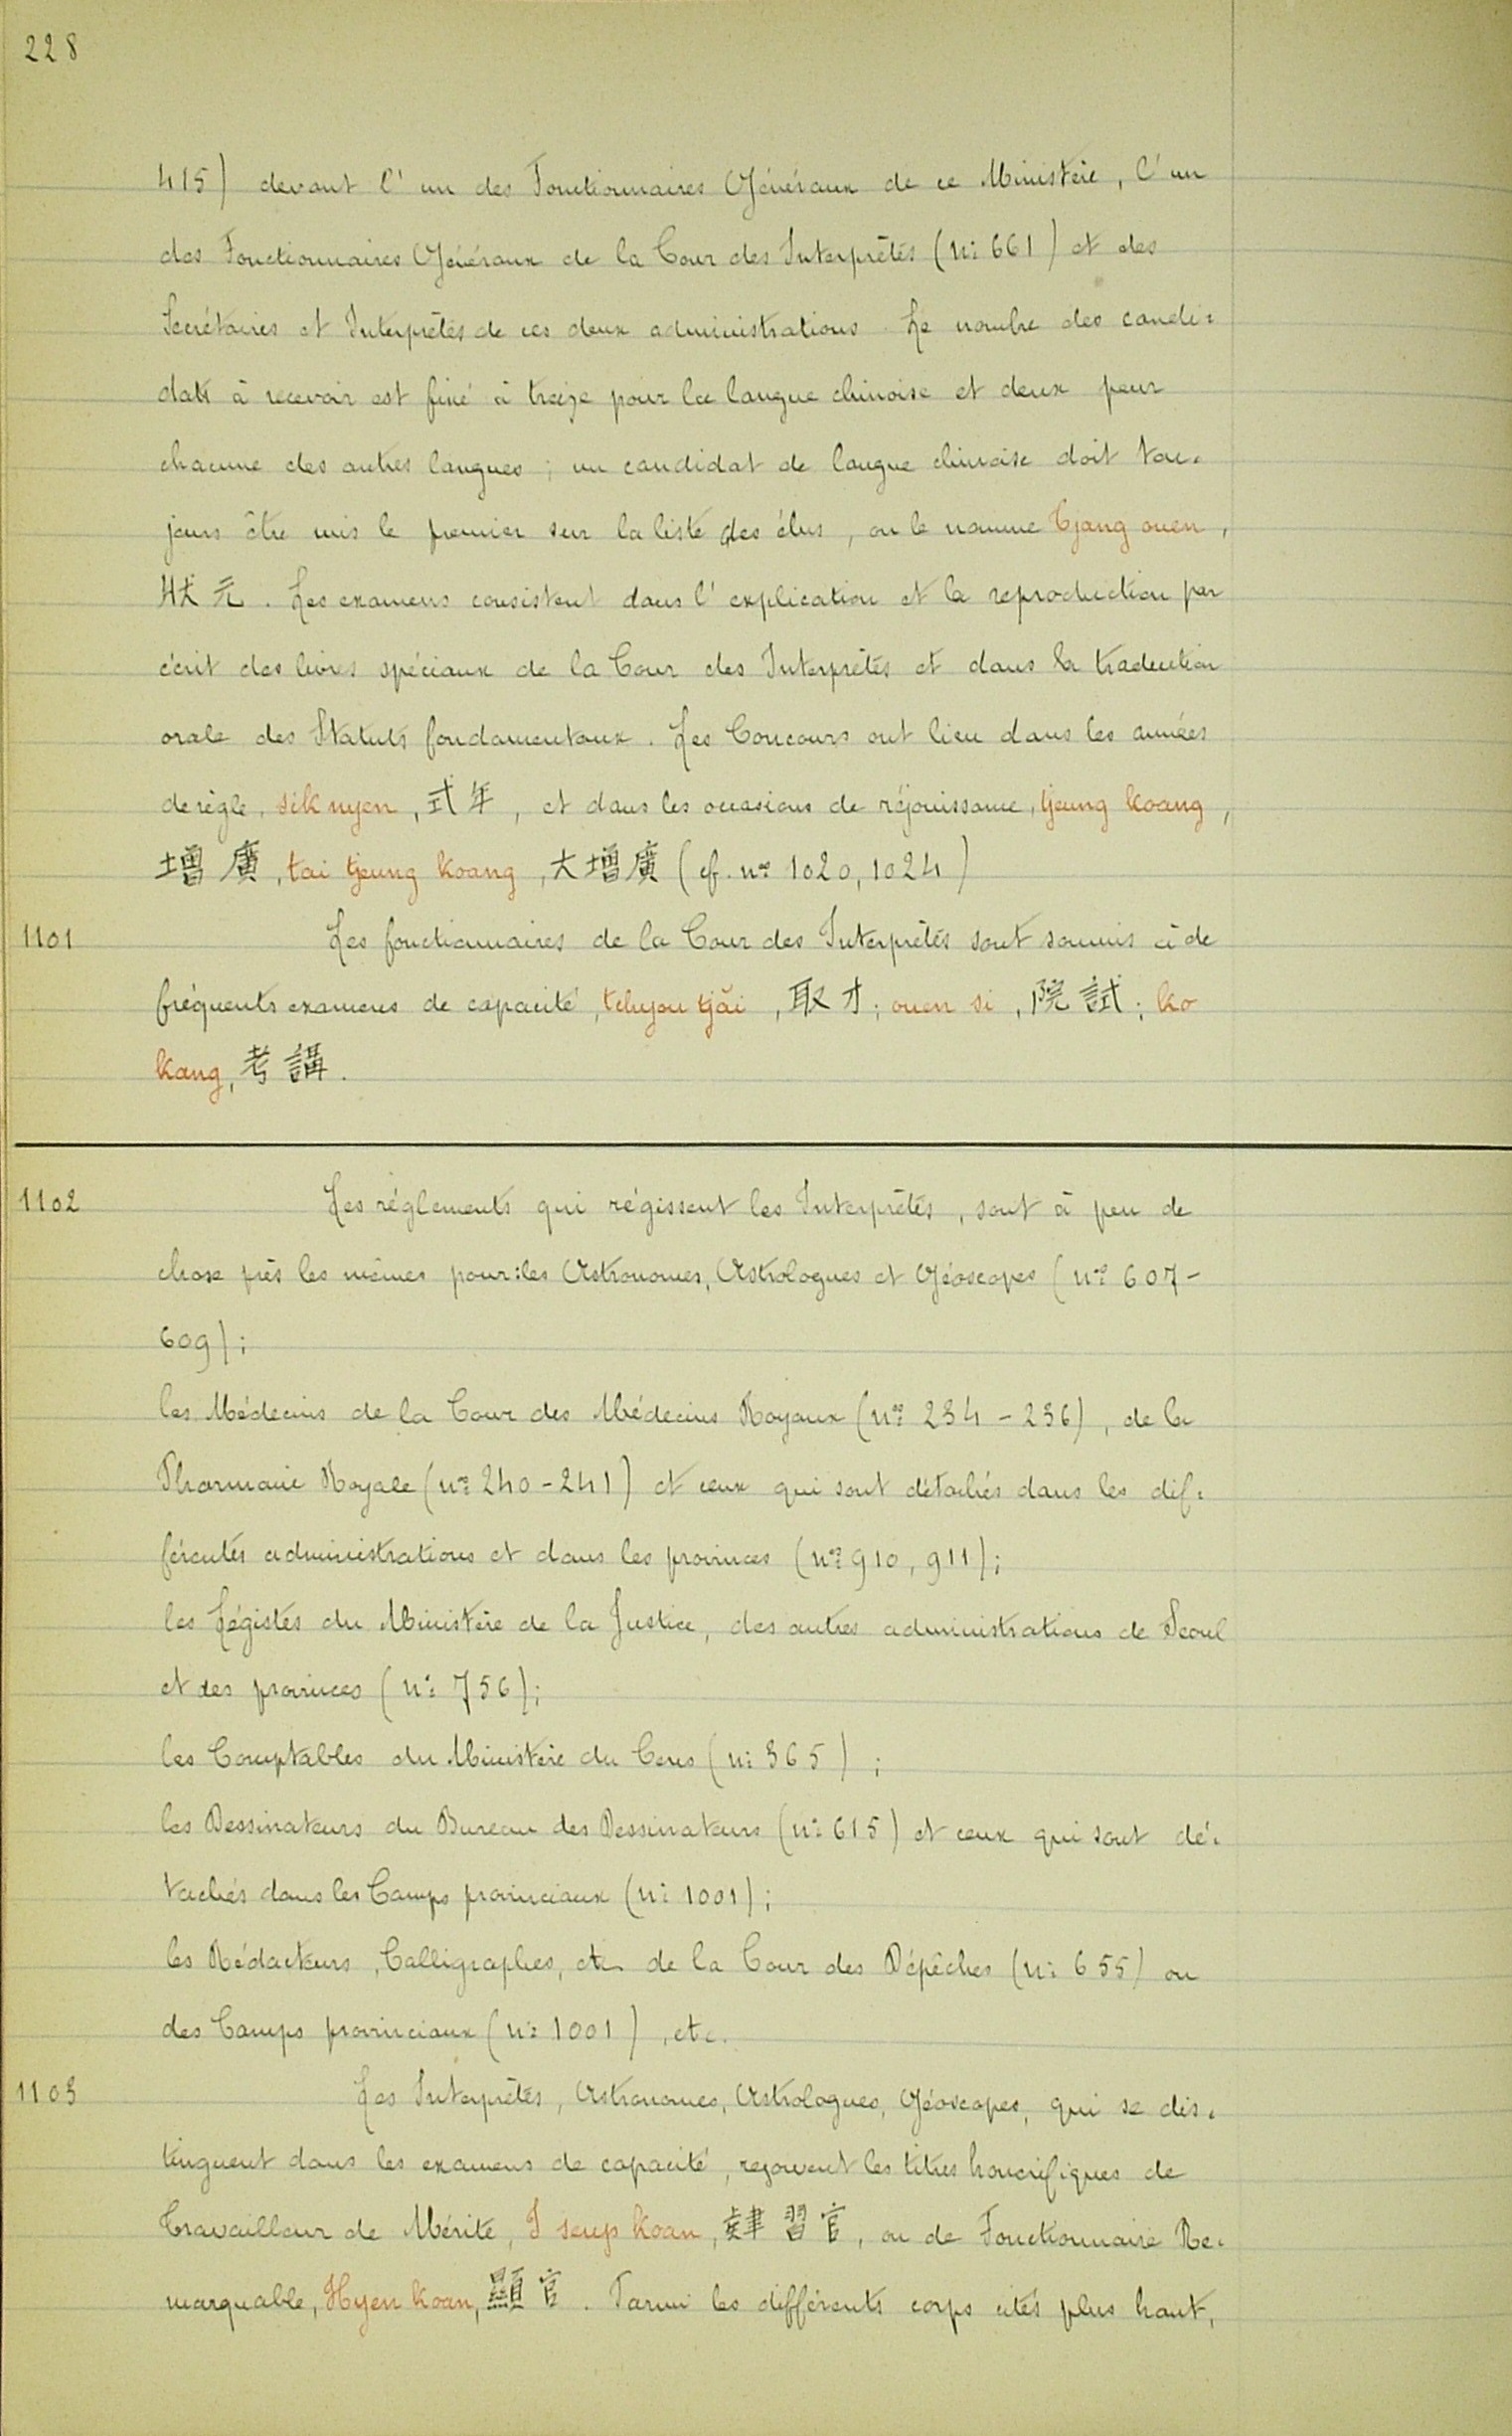 228
415) devant l'un des Fonctionnaires Généraux de ce Ministère, l'un
des Fonctionnaires Généraux de la Cour des Interprètes (nº 661) et des
Secrétaires et Interprètes de ces deux administrations. Le nombre des candi=
dats à recevoir est fixé à treize pour la langue chinoise et deux pour
chacune des autres langues ; un candidat de langue chinoise doit tou=
jours être mis le premier sur la liste des élus, on le nomme Tjang ouen,
狀元. Les examens consistent dans l'explication et la reproduction par
écrit des livres spéciaux de la Cour des Interprètes et dans la traduction
orale des Statuts fondamentaux. Les Concours ont lieu dans les années
de règle, sik nyen, 式年, et dans les occasions de réjouissance, tjeung koang,
增廣, tai tjeung koang, 大增廣 (cf. nos 1020, 1024)
1101 Les fonctionnaires de la Cour des Interprètes sont soumis à de
fréquents examens de capacité, tchyou tjăi, 取才; ouen si, 院試; ko
kang, 考講.
1102 Les règlements qui régissent les Interprètes, sont à peu de
chose près les mêmes pour : les Astronomes, Astrologues et Géoscopes (nos 607-
609);
les Médecins de la Cour des Médecins Royaux (nos 234 - 236), de la
Pharmacie Royale (nos 240 - 241) et ceux qui sont détachés dans les dif=
férentes administrations et dans les provinces (nos 910, 911);
les Légistes du Ministère de la Justice, des autres administrations de Seoul
et des provinces (nº 756);
les Comptables du Ministère du Cens (nº 365) ;
les Dessinateurs du Bureau des Dessinateurs (nº 615) et ceux qui sont dé=
tachés dans les Camps provinciaux (nº 1001);
les Rédacteurs, Calligraphes, etc. de la Cour des Dépêches (nº 655) ou
des Camps provinciaux (nº 1001), etc.
1103 Les Interprètes, Astronomes, Astrologues, Géoscopes, qui se dis=
tinguent dans les examens de capacité, reçoivent les titres honorifiques de
Travailleur de Mérite, I seup koan, 肄習官, ou de Fonctionnaire Re=
marquable, Hyen koan, 顯官. Parmi les différents corps cités plus haut,